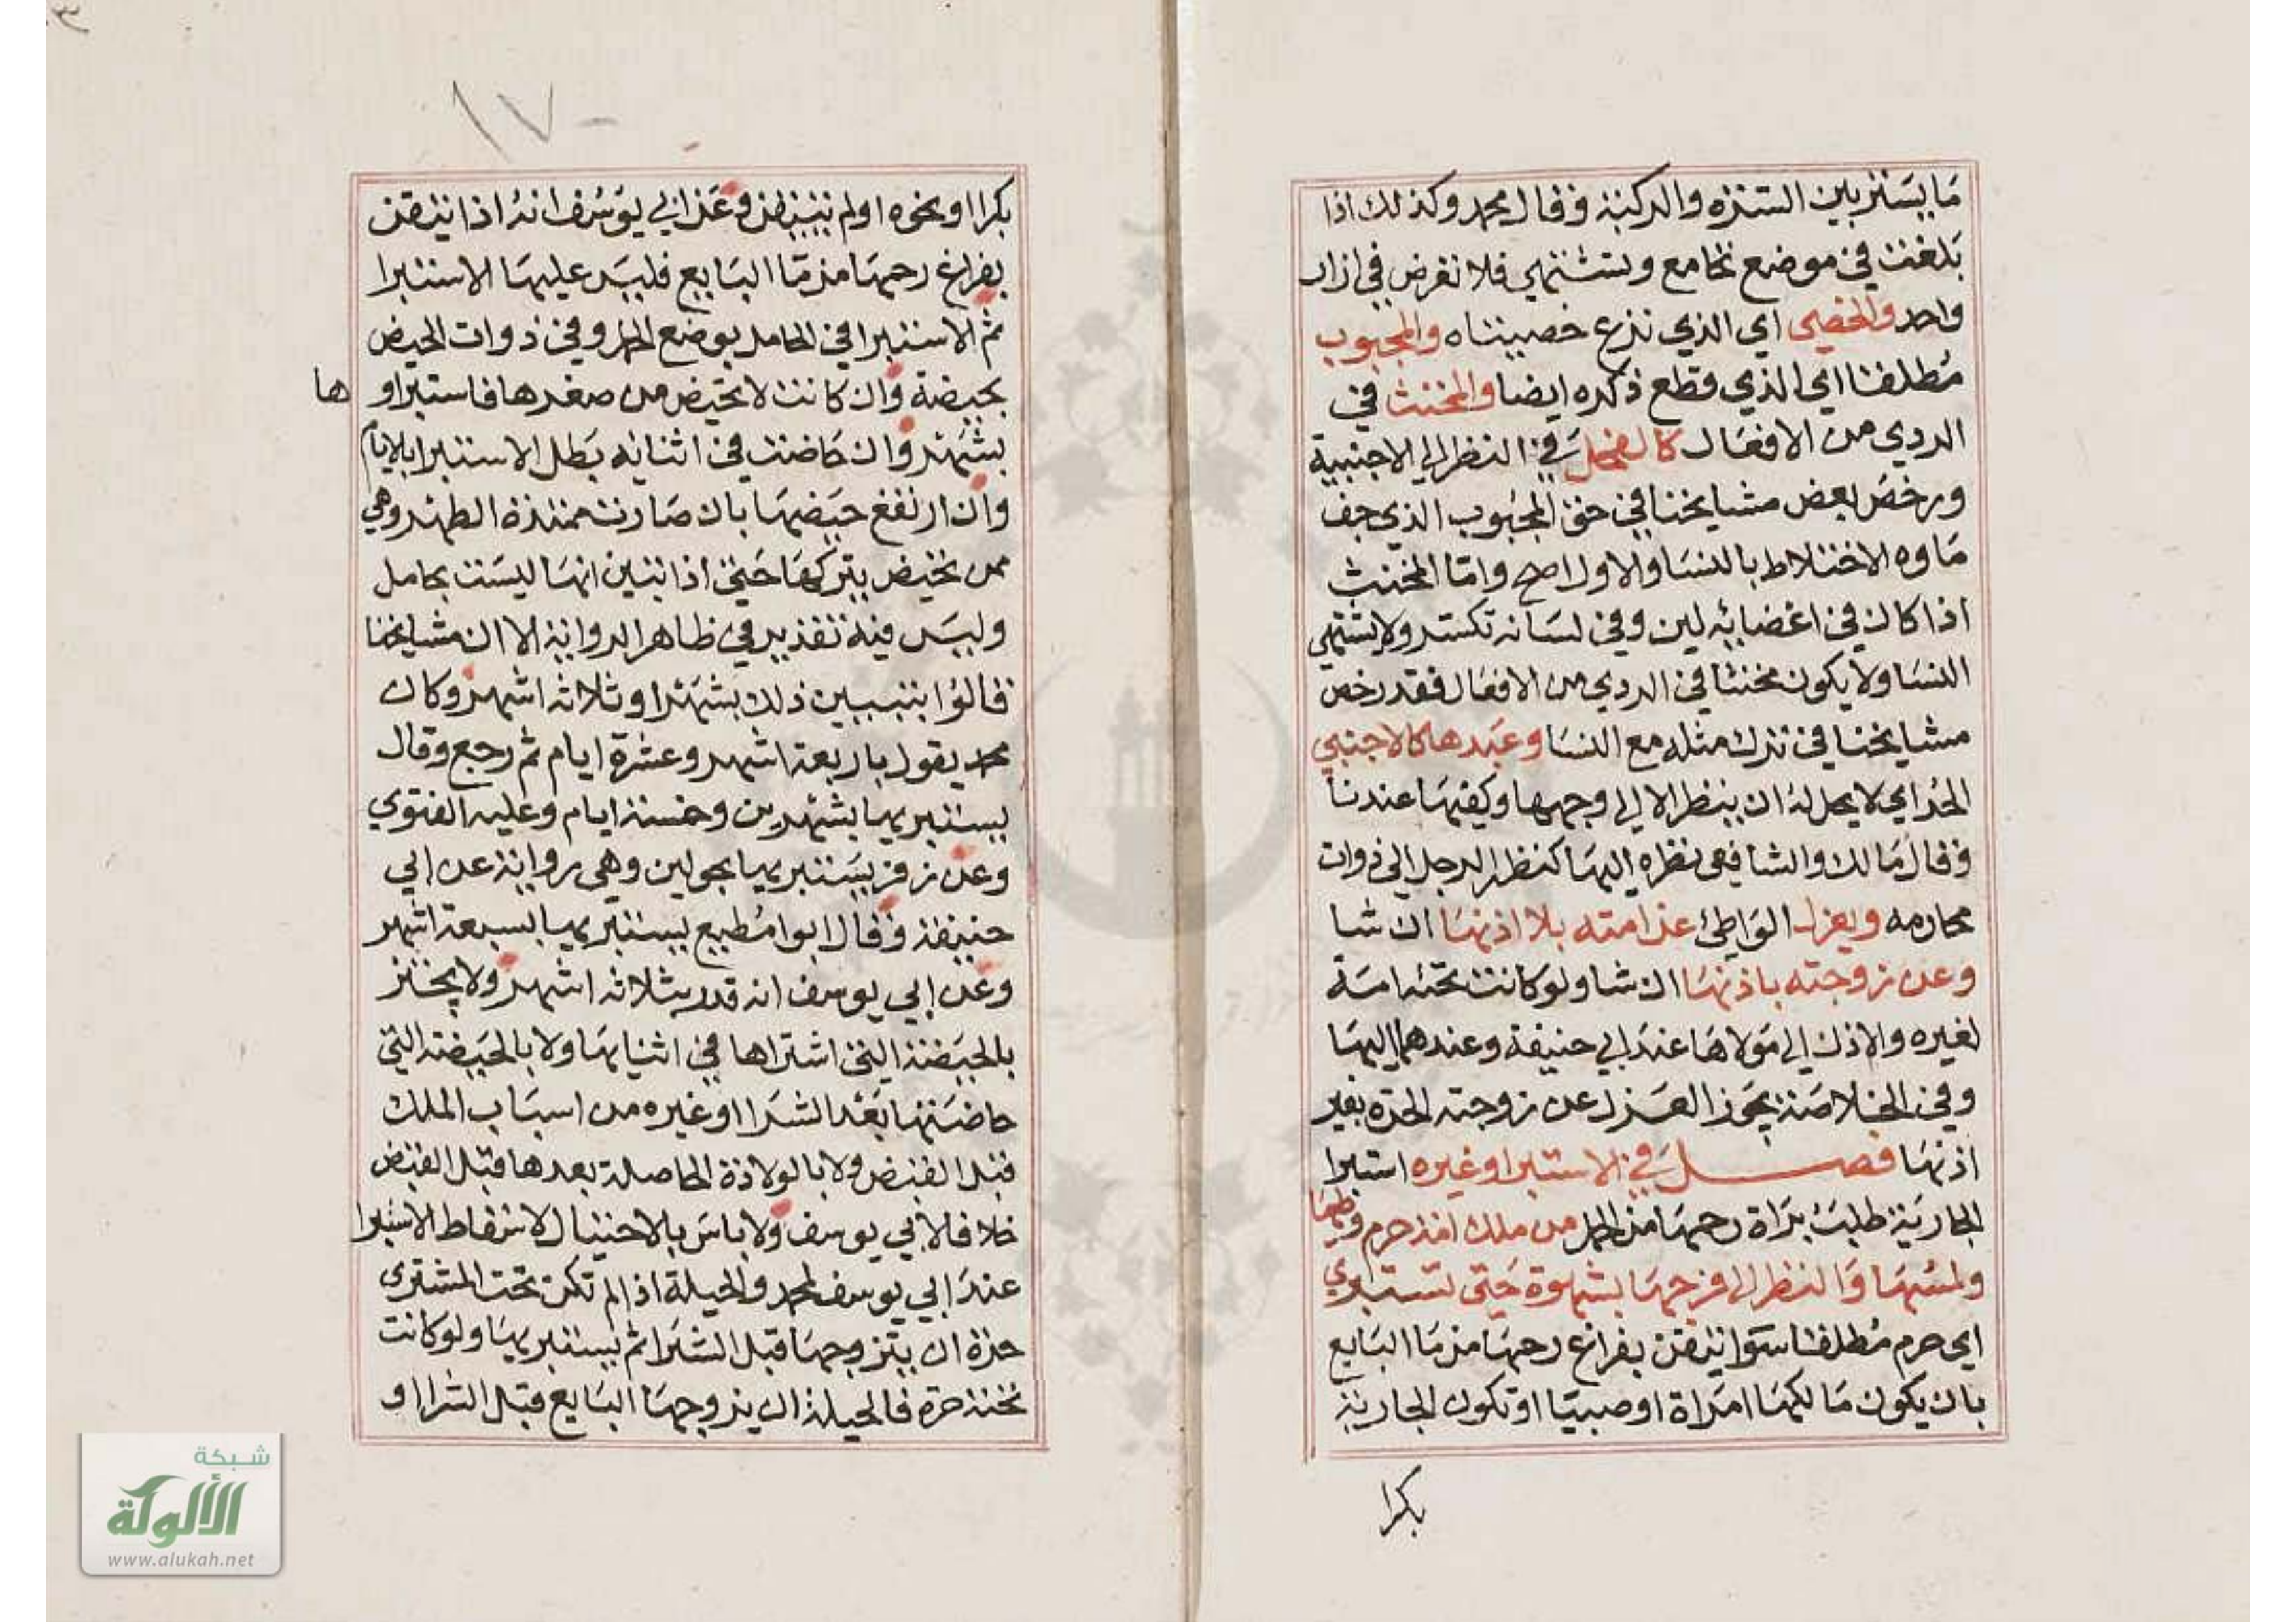 ما يستر بين السترة والركبة وقال محمد وكذلك اذا
بلغت في موضع تجامع وتشتهي فلا تعرض في ازار
واحد والخصي اي الذي نزع خصيتاه والمجبوب
مطلقا اي الذي قطع ذكره ايضا والمخنث في
الردي من الافعال كالفحل في النظر الي الاجنبية
ورخص بعض مشايخنا في حق المجبوب الذي جف
ماوه الاختلاط بالنسا والاول اصح واما المخنث
اذا كان في اعضائه لين وفي لسانه تكسر ولا يشتهي
النسا ولا يكون مخنثا في الردي من الافعال فقد رخص
مشايخنا في ترك مثله مع النسا وعبدها كالاجنبي
الحر اي لا يحل له ان ينظر الا الي وجهها وكفيها عندنا
وقال مالك والشافعي نظره اليها كنظر الرجل الي ذوات
محارمه ويعزل الواطئ عن امته بلا اذنها ان شا
وعن زوجته باذنها ان شا ولو كانت تحته امة
لغيره والاذن الي مولاها عند ابي حنيفة وعندهما اليها
وفي الخلاصة يجوز العزل عن زوجته الحرة بغير
اذنها فصل في الاستبرا وغيره استبرا
الجارية طلب براة رحمها من الحمل من ملك امة حرم وطيها
ولمسها والنظر الي فرجها بشهوة حتى تستبري
اي حرم مطلقا سوا تيقن بفراغ رحمها من ما البايع
بان يكون مالكها امراة او صبيا او تكون الجارية
بكرا
١٧
بكرا او نحوه او لم يتيقن وعن ابي يوسف انه اذا تيقن
بفراغ رحمها من ما البايع فليس عليها الاستبرا
ثم الاستبرا في الحامل بوضع الحمل وفي ذوات الحيض
بحيضة وان كانت لا تحيض من صغرها فاستبراو ها
بشهر وان حاضت في اثنائه بطل الاستبرا بالايام
وان ارتفع حيضها بان صارت ممتدة الطهر وهي
ممن تحيض يتركها حتي اذا تبين انها ليست بحامل
وليس فيه تقدير في ظاهر الرواية الا ان مشايخنا
قالوا يتبين ذلك بشهر او ثلاثة اشهر وكان
محمد يقول باربعة اشهر وعشرة ايام ثم رجع وقال
يستبريها بشهرين وخمسة ايام وعليه الفتوي
وعن زفر يستبريها بحولين وهي رواية عن ابي
حنيفة وقال ابوا مطيع يستبريها بسبعة اشهر
وعن ابي يوسف انه قدر بثلاثة اشهر ولا يجتز
بالحيضة التي اشتراها في اثنايها ولا بالحيضة التي
حاضتها بعد الشرا او غيره من اسباب الملك
قبل القبض ولا بالولادة الحاصلة بعدها قبل القبض
خلافا لابي يوسف ولا باس بالاحتيال لاسقاط الاستبرا
عند ابي يوسف لمحمد والحيلة اذا لم تكن تحت المشتري
حرة ان يتزوجها قبل الشرا ثم يستبريها ولو كانت
تحته حرة فالحيلة ان يزوجها البايع قبل الشرا او
شبكة
الألوكة
www.alukah.net